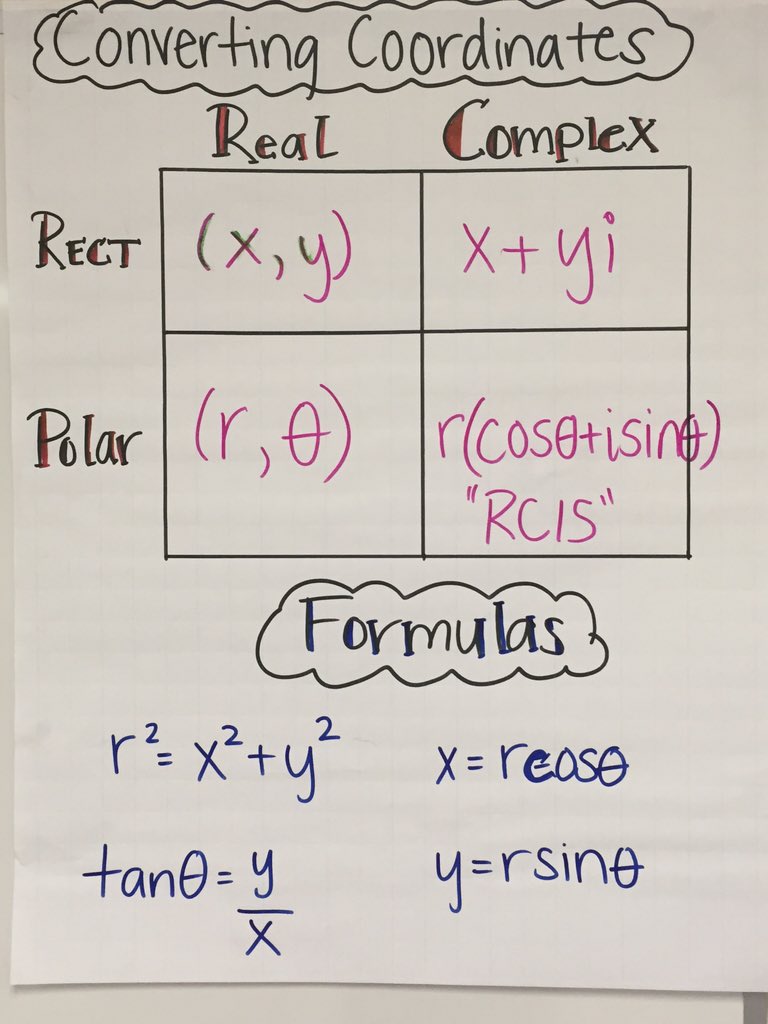 Converting Coordinates
Real Complex
Rect (x, y) x + yi
Polar (r, θ) r(cosθ+isinθ)
"RCIS"
Formulas
r² = x² + y² x = rcosθ
tanθ = y/x y = rsinθ